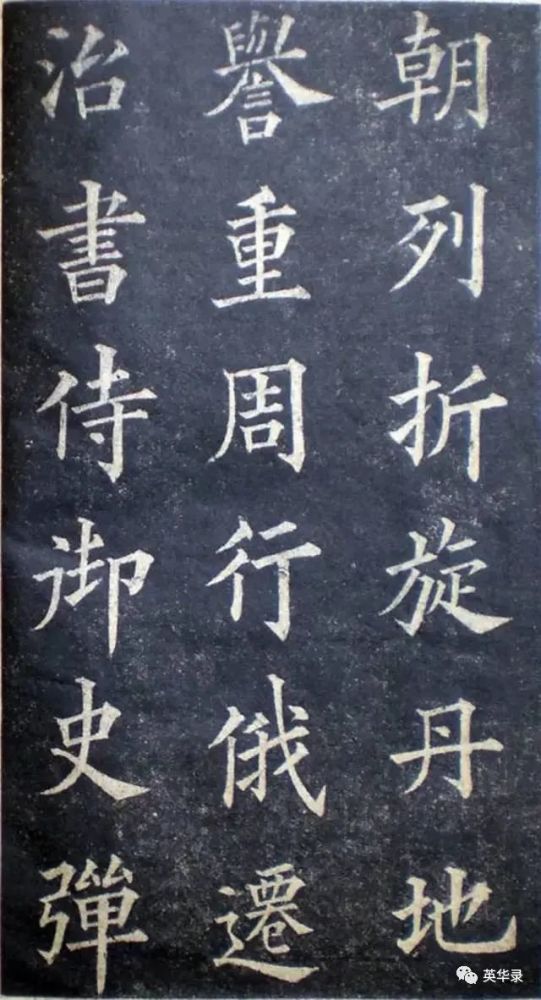 朝列折旋丹地
譽重周行俄遷
治書侍御史彈
英华录